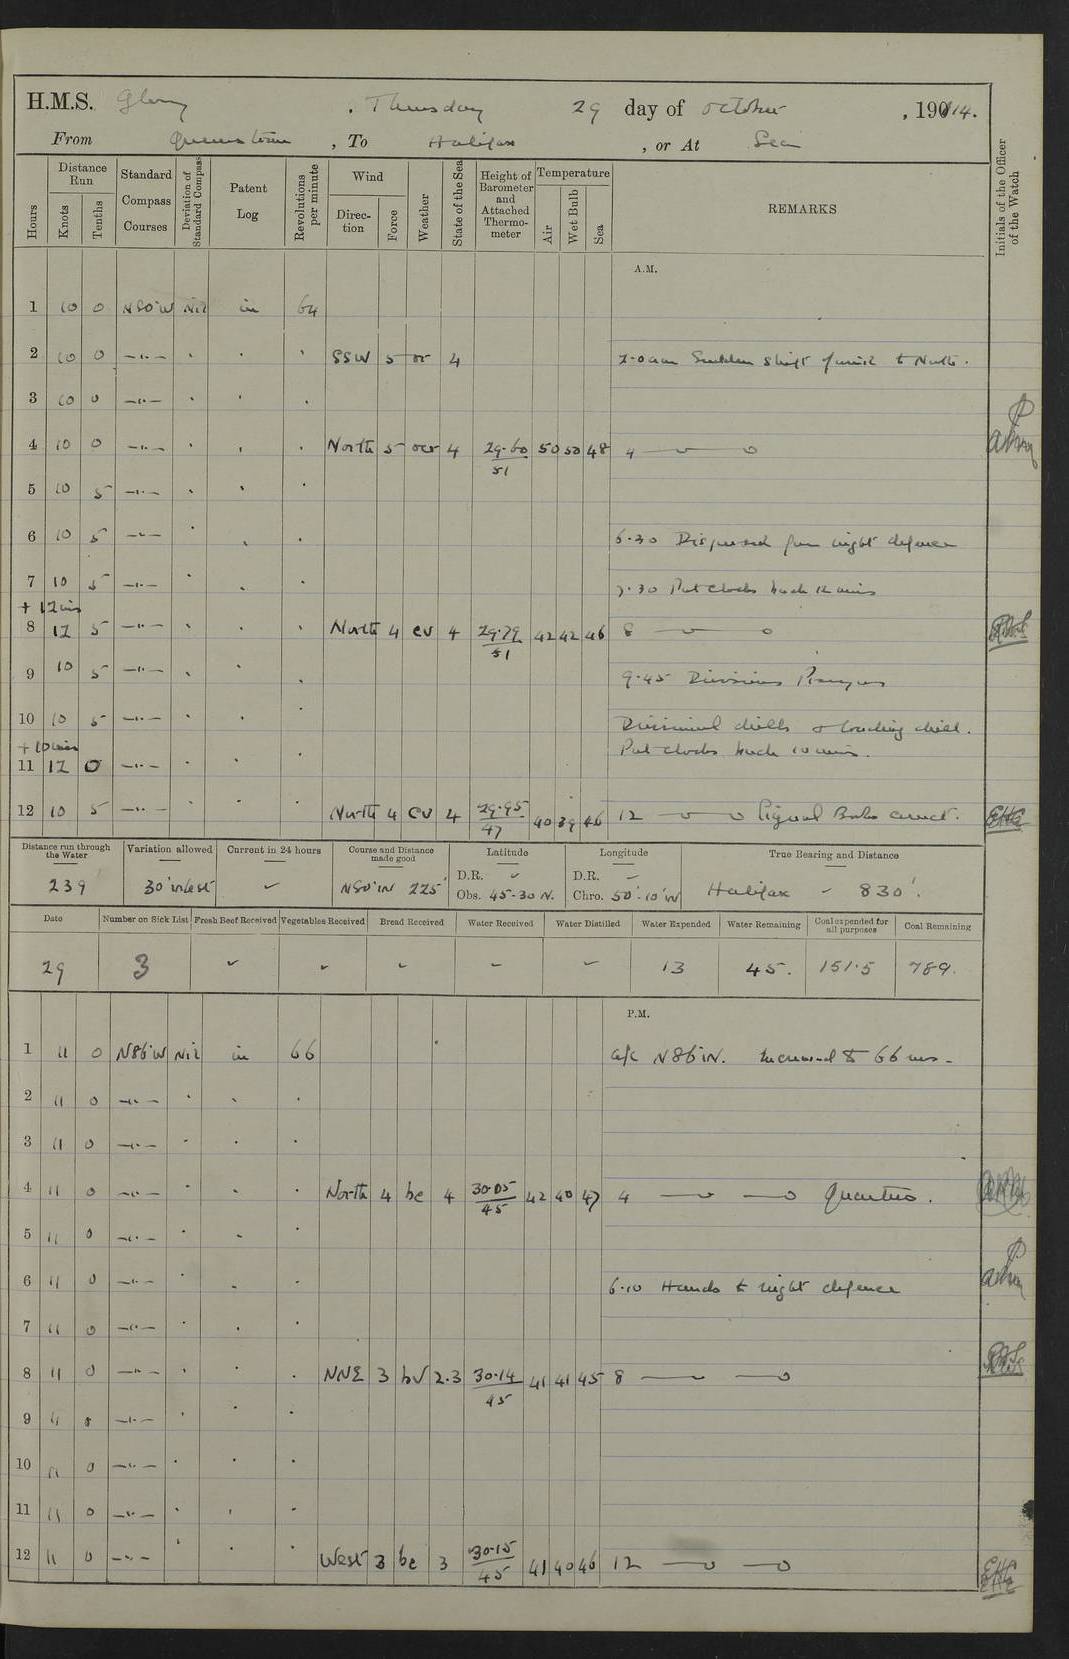 H.M.S. Glory , Thursday 29 day of October , 1914.
From Queenstown , To Halifax , or At Sea
Hours
Distance Run
Knots
Tenths
Standard Compass Courses
Deviation of Standard Compass
Patent Log
Revolutions per minute
Wind
Direc-tion
Force
Weather
State of the Sea
Height of Barometer and Attached Thermo-meter
Temperature
Air
Wet Bulb
Sea
REMARKS
Initials of the Officer of the Watch
A.M.
1 10 0 N80°W Nil in 64
2 10 0 —"— SSW 5 or 4 2.0am Sudden shift of wind to North.
3 10 0 —"—
4 10 0 —"— North 5 ocr 4 29.60/51 50 50 48 4
5 10 5 —"—
6 10 5 —"— 6.30 Dispersed from night defence
7 10 5 —"— 7.30 Put clocks back 12 mins
+ 12 mins
8 12 5 —"— North 4 cv 4 29.79/51 42 42 46 8
9 10 5 —"— 9.45 Divisions Prayers
10 10 5 —"— Divisional drills & loading drill.
+ 10 mins Put clocks back 10 mins.
11 12 0 —"—
12 10 5 —"— North 4 cv 4 29.95/47 40 39 46 12 Signal Books correct. EHG
Distance run through the Water
Variation allowed
Current in 24 hours
Course and Distance made good
Latitude
Longitude
True Bearing and Distance
239 30° West N80°W 225' D.R. Obs. 45-30 N. D.R. Chro. 50°-10'W Halifax - 830'.
Date
Number on Sick List
Fresh Beef Received
Vegetables Received
Bread Received
Water Received
Water Distilled
Water Expended
Water Remaining
Coal expended for all purposes
Coal Remaining
29 3 13 45. 151.5 789.
P.M.
1 11 0 N86°W Nil in 66 a/c N86°W. Increased to 66 revs.
2 11 0 —"—
3 11 0 —"—
4 11 0 —"— North 4 bc 4 30.05/45 42 40 47 4 Quarters.
5 11 0 —"—
6 11 0 —"— 6.10 Hands to night defence
7 11 0 —"—
8 11 0 —"— NNE 3 bv 2.3 30.14/45 41 41 45 8
9 11 0 —"—
10 11 0 —"—
11 11 0 —"—
12 11 0 —"— West 3 bc 3 30.15/45 41 40 46 12 EHG